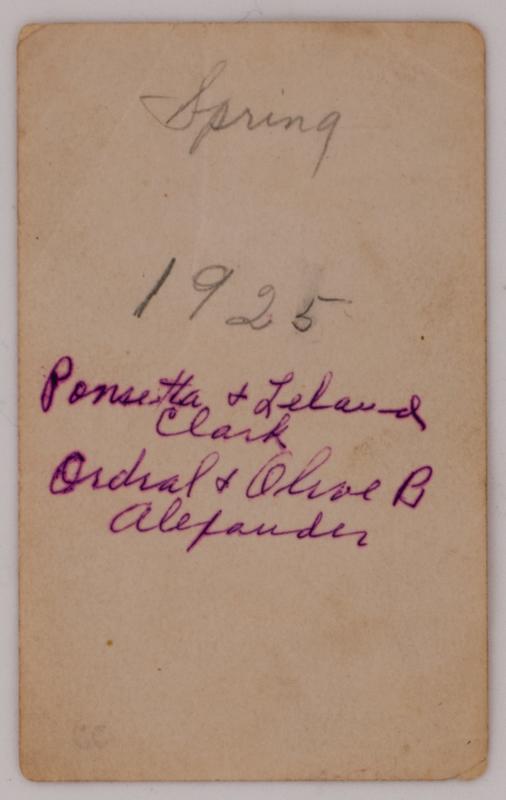 Spring
1925
Ponsetta & Leland
Clark
Ordral & Olive B
Alexander